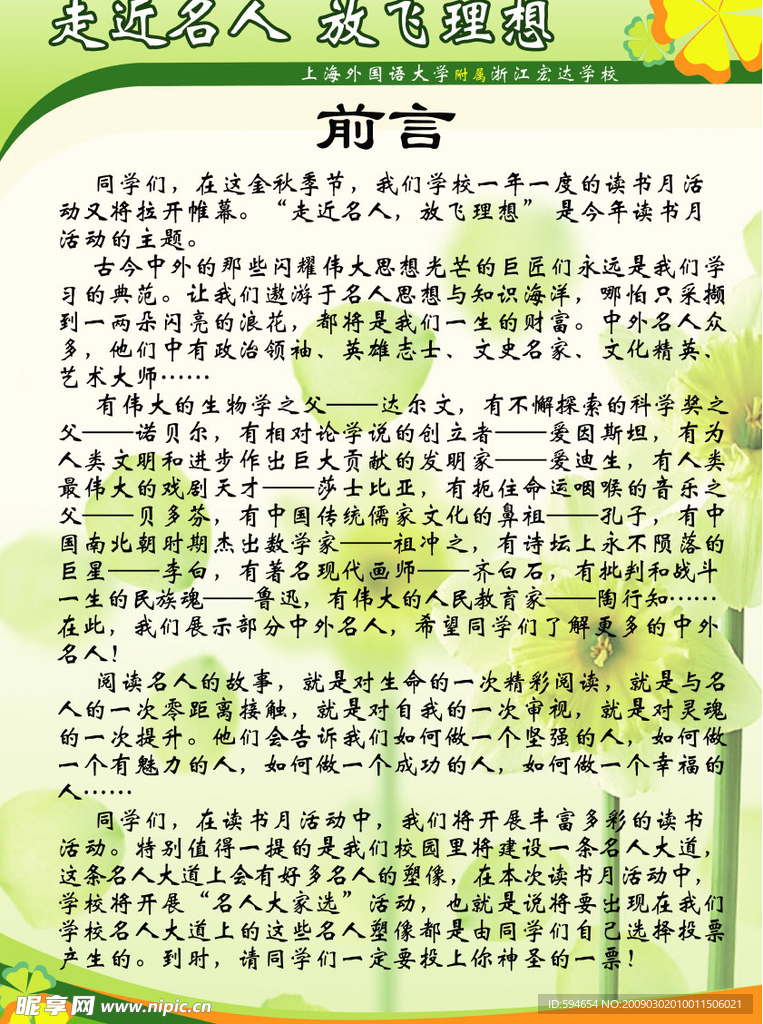 走近名人 放飞理想
上海外国语大学附属浙江宏达学校
前言
同学们，在这金秋季节，我们学校一年一度的读书月活
动又将拉开帷幕。“走近名人，放飞理想” 是今年读书月
活动的主题。
古今中外的那些闪耀伟大思想光芒的巨匠们永远是我们学
习的典范。让我们遨游于名人思想与知识海洋，哪怕只采撷
到一两朵闪亮的浪花，都将是我们一生的财富。中外名人众
多，他们中有政治领袖、英雄志士、文史名家、文化精英、
艺术大师……
有伟大的生物学之父——达尔文，有不懈探索的科学奖之
父——诺贝尔，有相对论学说的创立者——爱因斯坦，有为
人类文明和进步作出巨大贡献的发明家——爱迪生，有人类
最伟大的戏剧天才——莎士比亚，有扼住命运咽喉的音乐之
父——贝多芬，有中国传统儒家文化的鼻祖——孔子，有中
国南北朝时期杰出数学家——祖冲之，有诗坛上永不陨落的
巨星——李白，有著名现代画师——齐白石，有批判和战斗
一生的民族魂——鲁迅，有伟大的人民教育家——陶行知……
在此，我们展示部分中外名人，希望同学们了解更多的中外
名人！
阅读名人的故事，就是对生命的一次精彩阅读，就是与名
人的一次零距离接触，就是对自我的一次审视，就是对灵魂
的一次提升。他们会告诉我们如何做一个坚强的人，如何做
一个有魅力的人，如何做一个成功的人，如何做一个幸福的
人……
同学们，在读书月活动中，我们将开展丰富多彩的读书
活动。特别值得一提的是我们校园里将建设一条名人大道，
这条名人大道上会有好多名人的塑像，在本次读书月活动中，
学校将开展“名人大家选”活动，也就是说将要出现在我们
学校名人大道上的这些名人塑像都是由同学们自己选择投票
产生的。到时，请同学们一定要投上你神圣的一票！
昵享网 www.nipic.cn
ID:594654 NO:20090302010011506021